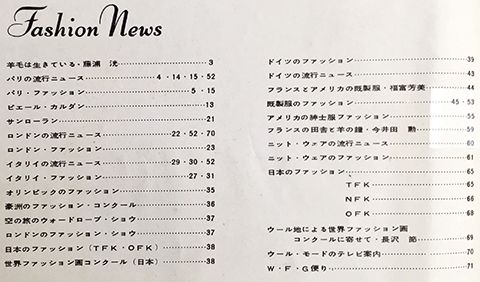 Fashion News
羊毛は生きている・藤浦 洸………3
パリの流行ニュース………4・14・15・52
パリ・ファッション………5・15
ピエール・カルダン………13
サンローラン………21
ロンドンの流行ニュース………22・52・70
ロンドン・ファッション………23
イタリイの流行ニュース………29・30・52
イタリイ・ファッション………27・31
オリンピックのファッション………35
豪洲のファッション・コンクール………36
空の旅のウォードローブ・ショウ………37
ロンドンのファッション・ショウ………37
日本のファッション（TFK・OFK）………38
世界ファッション画コンクール（日本）………38
ドイツのファッション………39
ドイツの流行ニュース………43
フランスとアメリカの既製服・福富芳美………44
既製服のファッション………45・53
アメリカの紳士服ファッション………55
フランスの田舎と羊の鐘・今井田 勲………59
ニット・ウェアの流行ニュース………60
ニット・ウェアのファッション………61
日本のファッション………65
TFK………65
NFK………66
OFK………68
ウール地による世界ファッション画
コンクールに寄せて・長沢 節………69
ウール・モードのテレビ案内………70
W・F・G便り………71